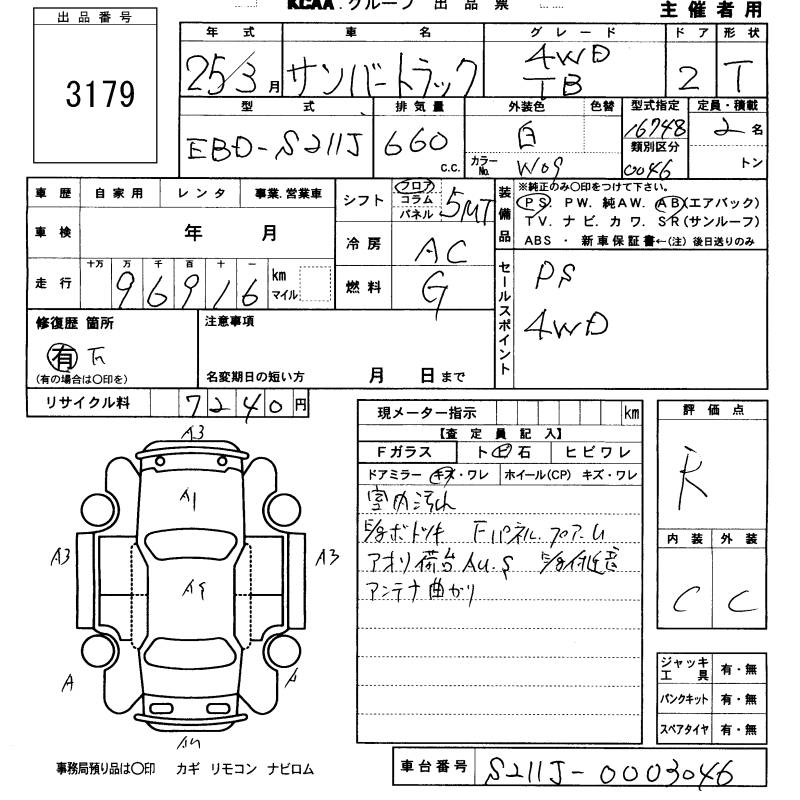 KCAA.グループ 出品票
主催者用
出品番号
3179
年式 車名 グレード ドア 形状
25/3月 サンバートラック 4WD TB 2 T
型式 排気量 外装色 色替 型式指定 定員・積載
EBD-S211J 660 C.C. 白 カラーNo. W09 16748 2名
類別区分 0046 トン
車歴 自家用 レンタ 事業.営業車
シフト フロア コラム パネル 5MT
装備品 ※純正のみ〇印をつけて下さい。
PS. PW. 純AW. AB(エアバック)
TV. ナビ. カワ. SR(サンルーフ)
ABS ・ 新車保証書←(注) 後日送りのみ
車検 年 月
冷房 AC
走行 十万 万 千 百 十 一
96916 km マイル
燃料 G
セールスポイント
PS
4WD
修復歴 箇所
有
(有の場合は〇印を)
注意事項
名変期日の短い方 月 日まで
リサイクル料 7240円
現メーター指示 km
【査定員記入】
Fガラス トビ石 ヒビワレ
ドアミラー キズ・ワレ ホイール(CP) キズ・ワレ
室内汚れ
Fパネル.フロアー
アオリ荷台AU.S
アンテナ曲がり
評価点
R
内装 外装
C C
A3
A1
A3 A3
A
ジャッキ工具 有・無
パンクキット 有・無
スペアタイヤ 有・無
事務局預り品は〇印 カギ リモコン ナビロム
車台番号 S211J-0003046